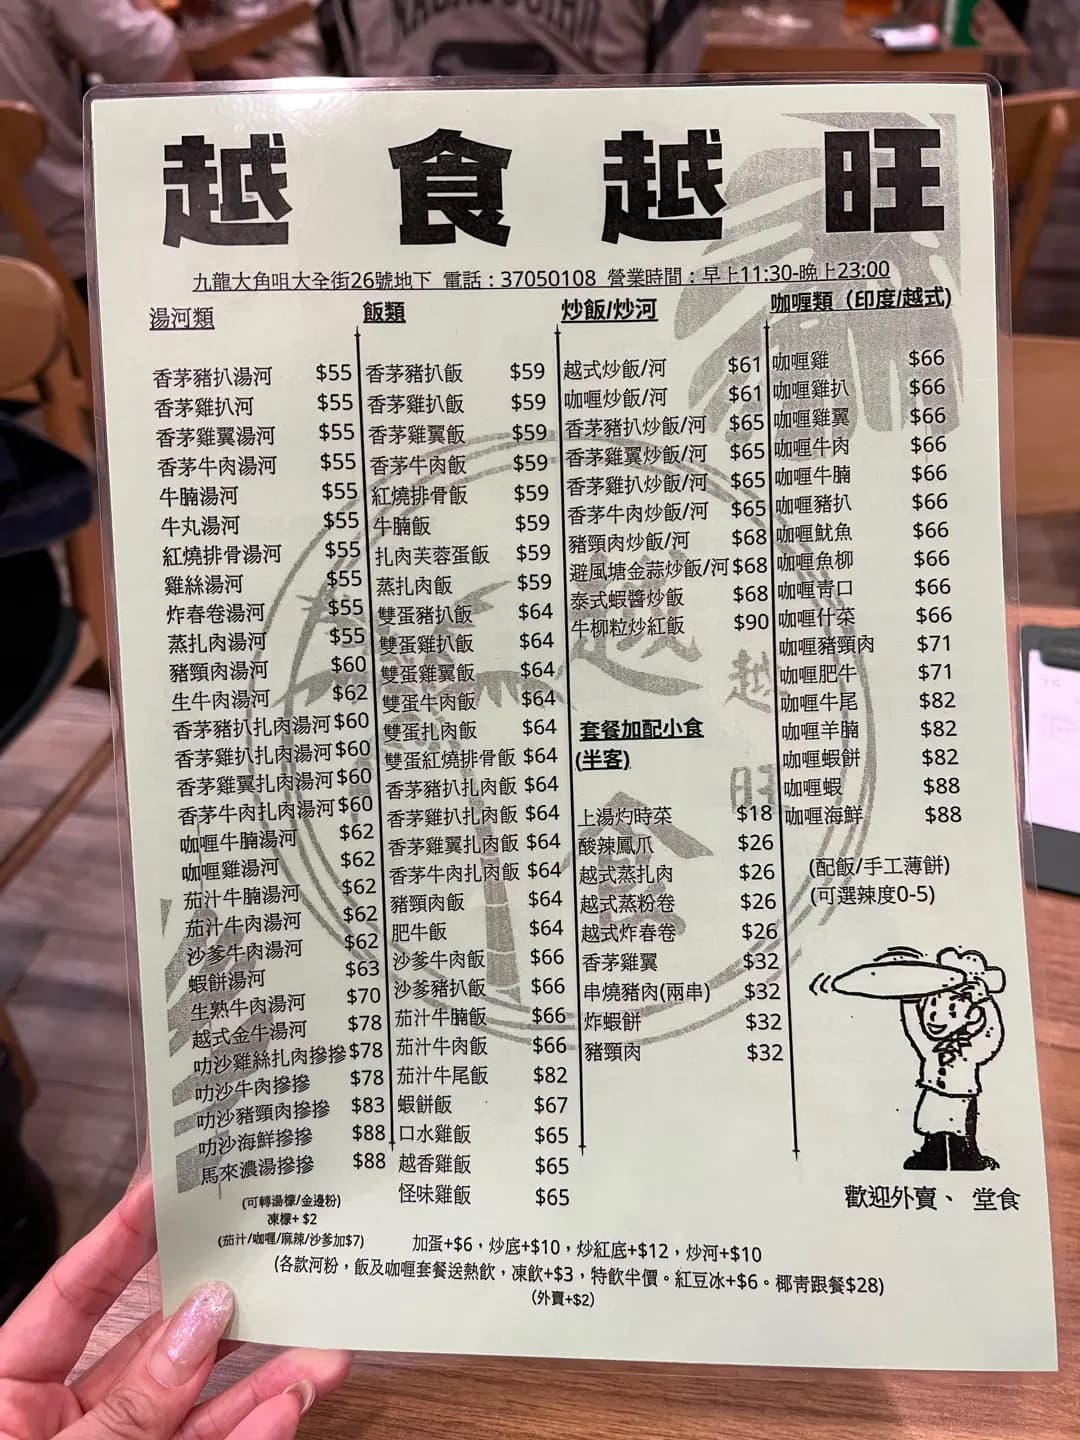 越食越旺
九龍大角咀大全街26號地下 電話：37050108 營業時間：早上11:30-晚上23:00
湯河類
香茅豬扒湯河 $55
香茅雞扒河 $55
香茅雞翼湯河 $55
香茅牛肉湯河 $55
牛腩湯河 $55
牛丸湯河 $55
紅燒排骨湯河 $55
雞絲湯河 $55
炸春卷湯河 $55
蒸扎肉湯河 $55
豬頸肉湯河 $60
生牛肉湯河 $62
香茅豬扒扎肉湯河 $60
香茅雞扒扎肉湯河 $60
香茅雞翼扎肉湯河 $60
香茅牛肉扎肉湯河 $60
咖喱牛腩湯河 $62
咖喱雞湯河 $62
茄汁牛腩湯河 $62
茄汁牛肉湯河 $62
沙爹牛肉湯河 $62
蝦餅湯河 $63
生熟牛肉湯河 $70
越式金牛湯河 $78
叻沙雞絲扎肉摻摻 $78
叻沙牛肉摻摻 $78
叻沙豬頸肉摻摻 $83
叻沙海鮮摻摻 $88
馬來濃湯摻摻 $88
(可轉湯檬/金邊粉)
凍檬+ $2
(茄汁/咖喱/麻辣/沙爹加$7)
飯類
香茅豬扒飯 $59
香茅雞扒飯 $59
香茅雞翼飯 $59
香茅牛肉飯 $59
紅燒排骨飯 $59
牛腩飯 $59
扎肉芙蓉蛋飯 $59
蒸扎肉飯 $59
雙蛋豬扒飯 $64
雙蛋雞扒飯 $64
雙蛋雞翼飯 $64
雙蛋牛肉飯 $64
雙蛋扎肉飯 $64
雙蛋紅燒排骨飯 $64
香茅豬扒扎肉飯 $64
香茅雞扒扎肉飯 $64
香茅雞翼扎肉飯 $64
香茅牛肉扎肉飯 $64
豬頸肉飯 $64
肥牛飯 $64
沙爹牛肉飯 $66
沙爹豬扒飯 $66
茄汁牛腩飯 $66
茄汁牛肉飯 $66
茄汁牛尾飯 $82
蝦餅飯 $67
口水雞飯 $65
越香雞飯 $65
怪味雞飯 $65
炒飯/炒河
越式炒飯/河 $61
咖喱炒飯/河 $61
香茅豬扒炒飯/河 $65
香茅雞翼炒飯/河 $65
香茅雞扒炒飯/河 $65
香茅牛肉炒飯/河 $65
豬頸肉炒飯/河 $68
避風塘金蒜炒飯/河 $68
泰式蝦醬炒飯 $68
牛柳粒炒紅飯 $90
套餐加配小食
(半客)
上湯灼時菜 $18
酸辣鳳爪 $26
越式蒸扎肉 $26
越式蒸粉卷 $26
越式炸春卷 $26
香茅雞翼 $32
串燒豬肉(兩串) $32
炸蝦餅 $32
豬頸肉 $32
咖喱類（印度/越式）
咖喱雞 $66
咖喱雞扒 $66
咖喱雞翼 $66
咖喱牛肉 $66
咖喱牛腩 $66
咖喱豬扒 $66
咖喱魷魚 $66
咖喱魚柳 $66
咖喱青口 $66
咖喱什菜 $66
咖喱豬頸肉 $71
咖喱肥牛 $71
咖喱牛尾 $82
咖喱羊腩 $82
咖喱蝦餅 $82
咖喱蝦 $88
咖喱海鮮 $88
(配飯/手工薄餅)
(可選辣度0-5)
歡迎外賣、 堂食
加蛋+$6，炒底+$10，炒紅底+$12，炒河+$10
(各款河粉，飯及咖喱套餐送熱飲，凍飲+$3，特飲半價。紅豆冰+$6。椰青跟餐$28)
(外賣+$2)
越
食
越
旺